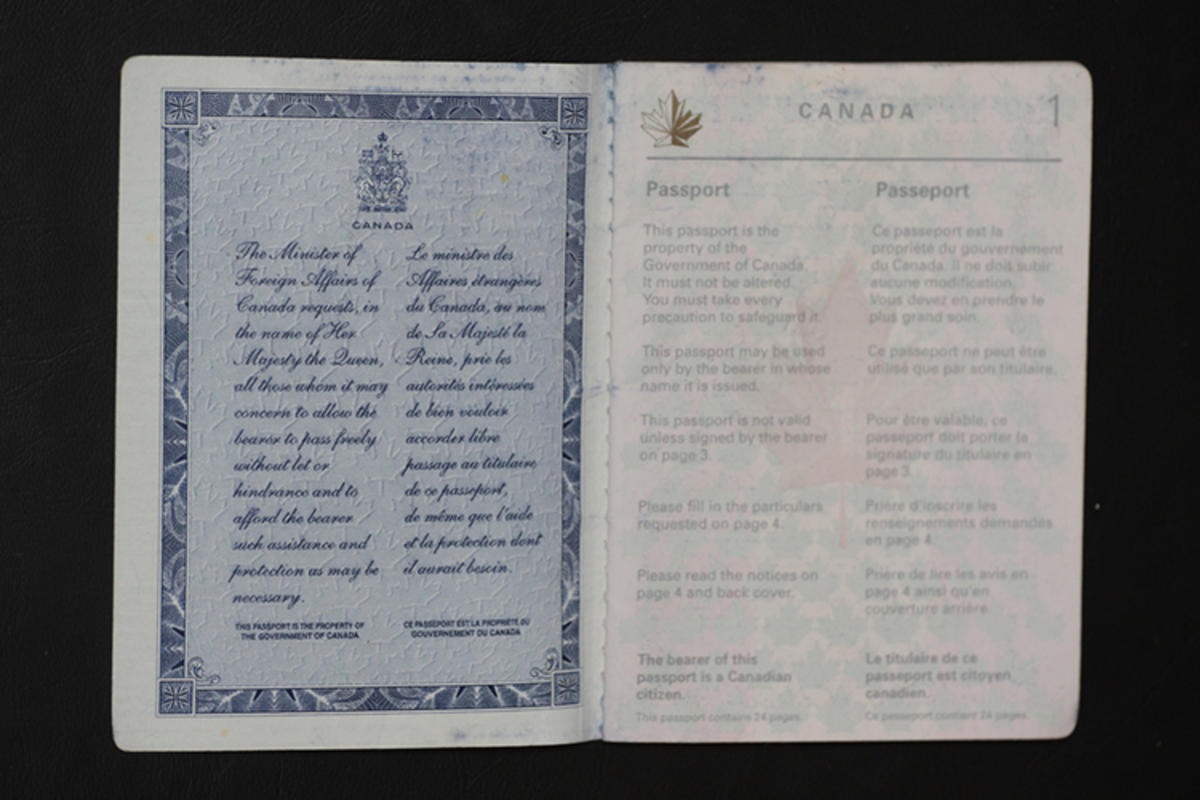 CANADA
The Minister of
Foreign Affairs of
Canada requests, in
the name of Her
Majesty the Queen,
all those whom it may
concern to allow the
bearer to pass freely
without let or
hindrance and to
afford the bearer
such assistance and
protection as may be
necessary.
THIS PASSPORT IS THE PROPERTY OF
THE GOVERNMENT OF CANADA
Le ministre des
Affaires étrangères
du Canada, au nom
de Sa Majesté la
Reine, prie les
autorités intéressées
de bien vouloir
accorder libre
passage au titulaire
de ce passeport,
de même que l'aide
et la protection dont
il aurait besoin.
CE PASSEPORT EST LA PROPRIÉTÉ DU
GOUVERNEMENT DU CANADA
CANADA
1
Passport
This passport is the
property of the
Government of Canada.
It must not be altered.
You must take every
precaution to safeguard it.
This passport may be used
only by the bearer in whose
name it is issued.
This passport is not valid
unless signed by the bearer
on page 3.
Please fill in the particulars
requested on page 4.
Please read the notices on
page 4 and back cover.
The bearer of this
passport is a Canadian
citizen.
This passport contains 24 pages.
Passeport
Ce passeport est la
propriété du gouvernement
du Canada. Il ne doit subir
aucune modification.
Vous devez en prendre le
plus grand soin.
Ce passeport ne peut être
utilisé que par son titulaire.
Pour être valable, ce
passeport doit porter la
signature du titulaire en
page 3.
Prière d'inscrire les
renseignements demandés
en page 4.
Prière de lire les avis en
page 4 ainsi qu'en
couverture arrière.
Le titulaire de ce
passeport est citoyen
canadien.
Ce passeport contient 24 pages.